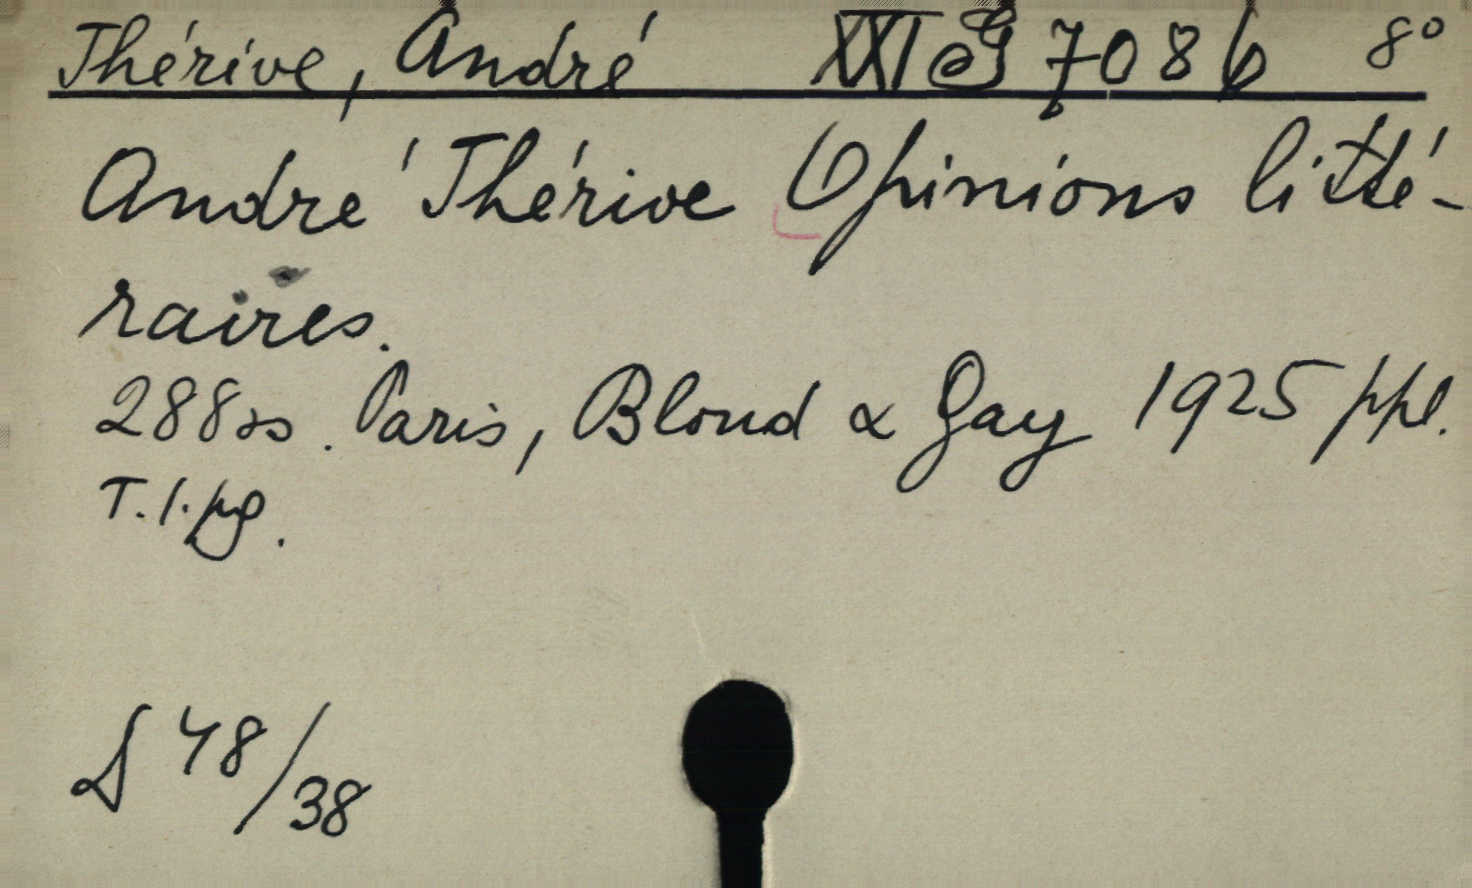 Thérive, André XXI G 7086 8°
André Thérive Opinions litté-
raires.
288ss. Paris, Bloud & Gay 1925 ppl.
T.l.pg.
S 48/38